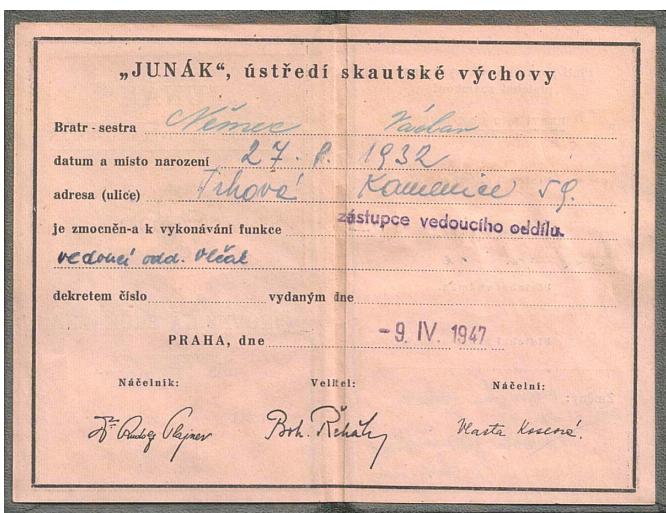 „JUNÁK“, ústředí skautské výchovy
Bratr - sestra Němec Václav
datum a místo narození 27. 8. 1932
adresa (ulice) Trhová Kamenice 59.
je zmocněn-a k vykonávání funkce zástupce vedoucího oddílu.
vedoucí odd. vlčat
dekretem číslo vydaným dne
PRAHA, dne -9. IV. 1947
Náčelník: Velitel: Náčelní:
Dr Rudolf Plajner Boh. Řehák Vlasta Koseová.